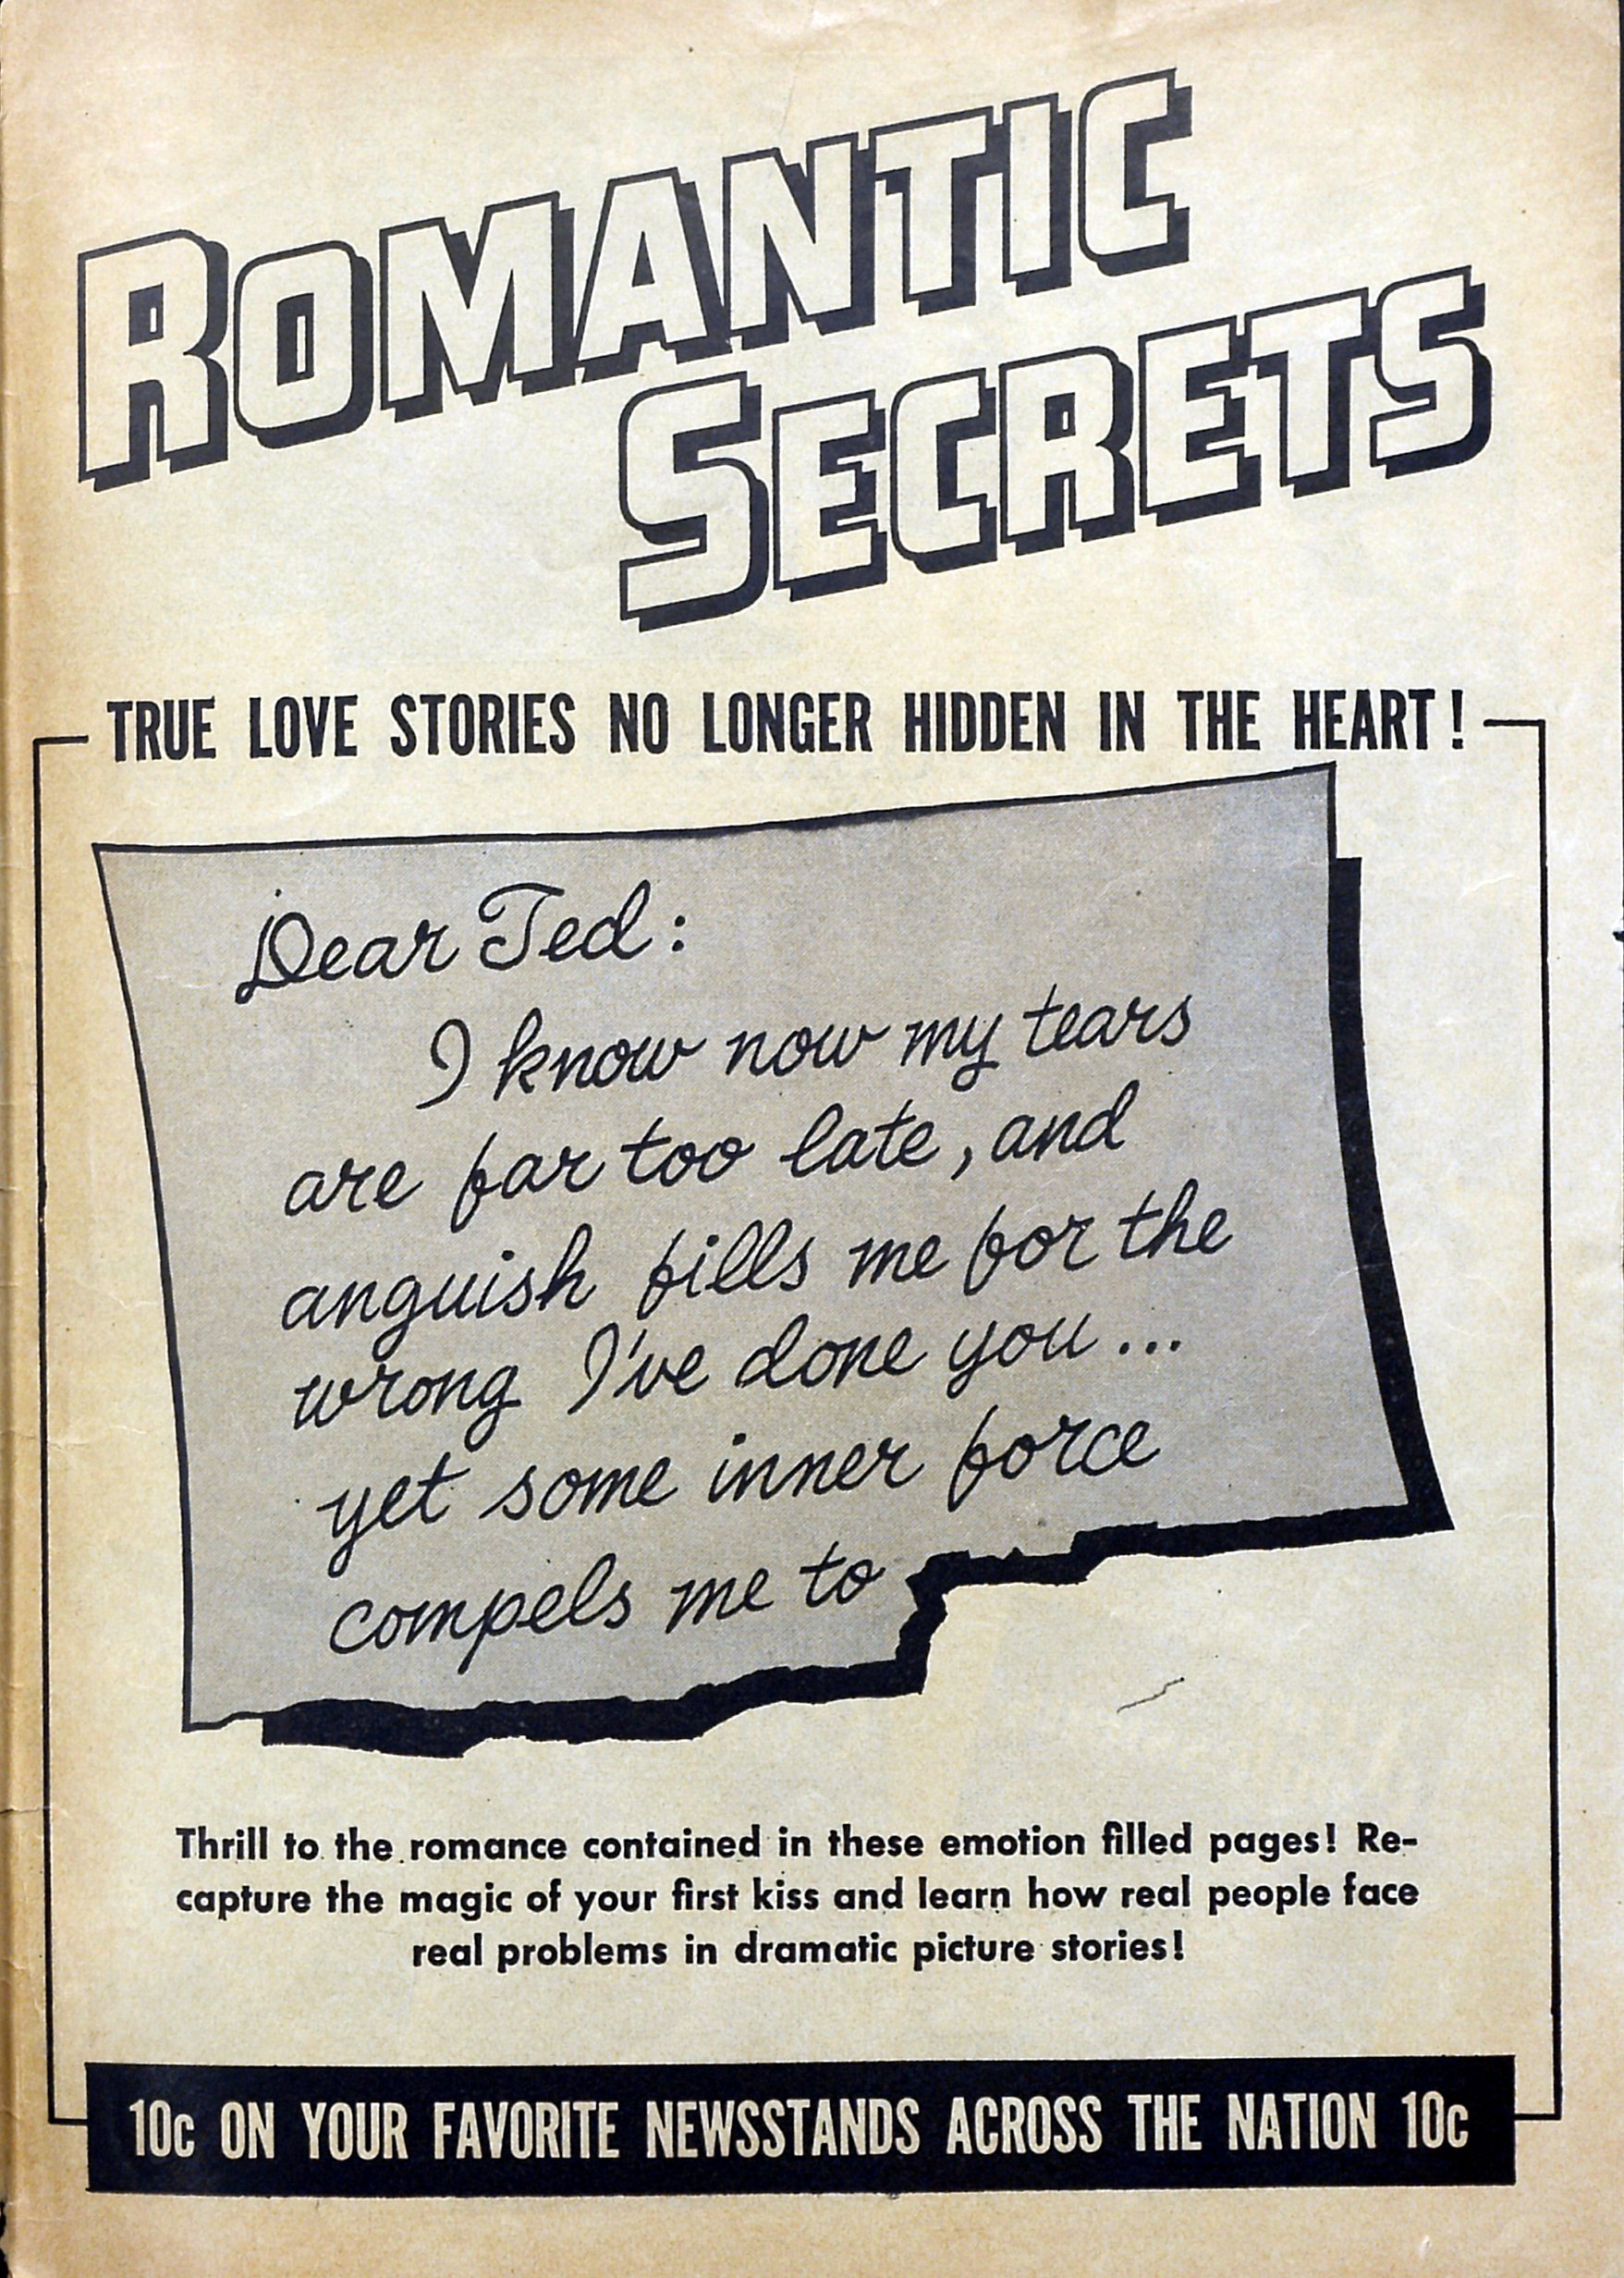 ROMANTIC
SECRETS
TRUE LOVE STORIES NO LONGER HIDDEN IN THE HEART!
Dear Ted:
I know now my tears
are far too late, and
anguish fills me for the
wrong I've done you...
yet some inner force
compels me to
Thrill to the romance contained in these emotion filled pages! Re-
capture the magic of your first kiss and learn how real people face
real problems in dramatic picture stories!
10c ON YOUR FAVORITE NEWSSTANDS ACROSS THE NATION 10c